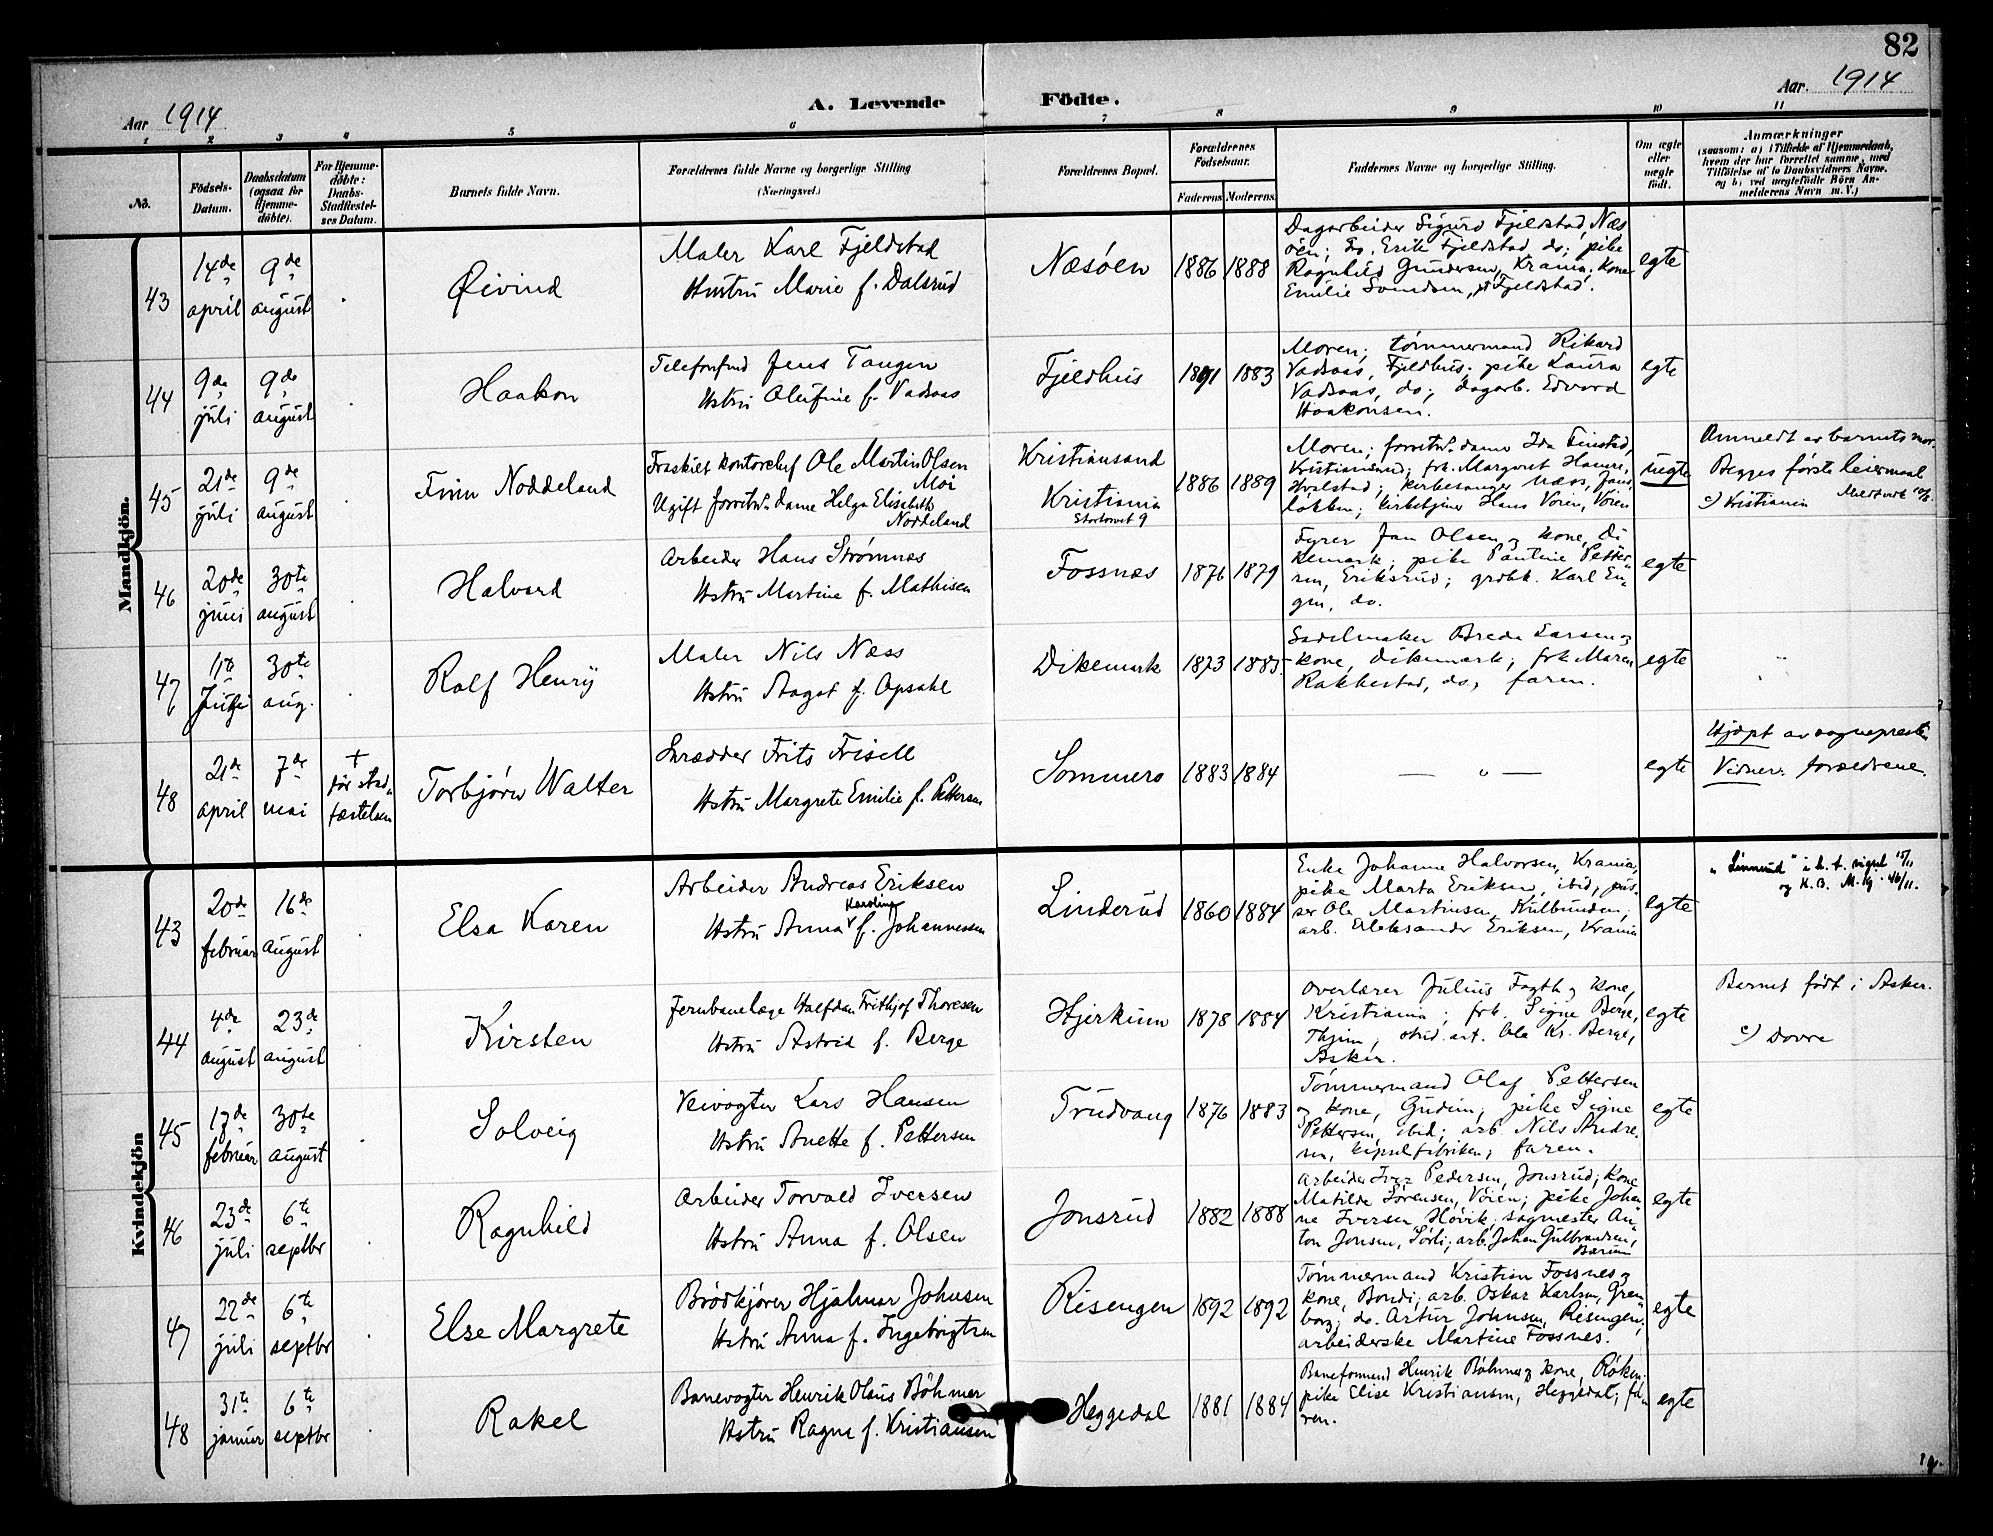 82
Aar 1914
A. Levende Födte.
Aar. 1914
1 2 3 4 5 6 7 8 9 10 11
No.
Födsels-Datum.
Daabsdatum (ogsaa for Hjemmedöbte).
For Hjemmedöbte: Daabs-Stadfæstelses Datum.
Barnets fulde Navn.
Forældrenes fulde Navne og borgerlige Stilling (Næringsvei.)
Forældrenes Bopæl.
Forældrenes Födselsaar.
Faderens Moderens
Faddernes Navne og borgerlige Stilling.
Om ægte eller uægte födt.
Anmærkninger
(saasom: a) i Tilfælde af Hjemmedaab,
hvem der har forrettet samme, med
Tilföielse af to Daabsvidners Navne.
og b) ved uægtefödte Börn Anmelderens Navn m. V.)
Mandkjön.
43
14de april
9de august
Øivind
Maler Karl Fjeldstad
Hustru Marie f. Dalsrud
Næsöen
1886 1888
Dagarbeider Sigurd Fjeldstad, Næs
öen; Do. Erik Fjeldstad, do; pike
Ragnhild Gundersen, Krania; kone
Emilie Svendsen, Fjeldstad.
egte
44
9de juli
9de august
Haakon
Telefonfmd Jens Tangen
Hstru Olufine f. Vadsaas
Fjeldhus
1891 1883
Moren; tømmermand Rikard
Vadsaas, Fjeldhus; pike Laura
Vadsaas, do; dagarb. Edvard
Haakonsen.
egte
45
21de juli
9de august
Finn Noddeland
Fraskilt kontorchef Ole Martin Olsen
Moi
Ugift forretn.dame Helga Elisabeth
Noddeland
Kristiansand
Kristiania
Stortorvet 9
1886 1889
Moren; forretn.dame Ida Finstad,
Kristiania; frk. Margaret Hamre,
Hvalstad; kirkesanger Næss, Jans
løkken; kirketjener Hans Voien, Voien
uegte
Anmeldt av barnets mor.
Begges første leiermaal
c) Kristiania
46
20de juni
30te august
Halvard
Arbeider Hans Strømnæs
Hstru Martine f. Mathisen
Fossnæs
1876 1879
Fyrer Jan Olsen og kone, Di
kemark; pike Pauline Petter
sen, Eriksrud; grdbk. Karl En
gen, do.
egte
47
11te Juli
30te aug.
Rolf Henry
Maler Nils Næss
Hstru Aagot f. Opsahl
Dikemark
1873 1885.
Sadelmaker Brede Larsen og
kone, Dikemark; frk Maren
Rakkestad, do, faren.
egte
48
21de april
7de mai
† før stadfæstelsen
Torbjørn Walter
Skrædder Frits Frisell
Hstru Margrete Emilie f. Pettersen
Sommero
1883 1884
— " —
egte
Hjdøpt av sogneprest
Vidner: forældrene.
Kvindekjön
43
20de februar
16de august
Elsa Karen
Arbeider Andreas Eriksen
Karoline
Hstru Anna f. Johannessen
Linderud
1860 1884
Enke Johanne Halvorsen, Krania;
pike Marta Eriksen, ibid; pus
ser Ole Martinsen, Kulbunden;
arb. Aleksander Eriksen, Krania
egte
44
4de august
23de august
Kirsten
Jernbanelæge Halfdan Frithjof Thoresen
Hstru Astrid f. Berge
Hjerkinn
1878 1884
Overlærer Julius Fagth og kone,
Kristiania; frk. Signe Berge,
Thjem, stud. art. Ole Kr. Berge,
Asker.
egte
Barnet født i Asker.
c) Dovre
45
17de februar
30te august
Solveig
Veivogter Lars Hansen
Hstru Anette f. Pettersen
Trudvang
1876 1883
Tømmermand Olaf Pettersen
og kone, Gudim; pike Signe
Pettersen, ibid; arb. Nils Andre
sen, kapselfabriken; faren.
egte
46
23de juli
6te septbr
Ragnhild
Arbeider Torvald Iversen
Hstru Anna f. Olsen
Jonsrud
1882 1888
Arbeider Iver Pedersen, Jonsrud; kone
Matilde Sørensen, Voien; pike Johan
ne Iversen, Høvik; sagmester An
ton Jonsen, Sørli; arb. Johan Gulbrandsen,
Bærum
egte
47
22de juli
6te septbr
Else Margrete
Brödkjører Hjalmar Johnsen
Hstru Anna f. Ingebrigtsen
Risengen
1892 1892
Tømmermand Kristian Fossnes og
kone, Bondi; arb. Oskar Karlsen, Grøn
borg; do. Artur Johnsen, Risengen;
arbeiderske Martine Fossnes.
egte
48
31te januar
6te septbr
Rakel
Banevogter Henrik Olaus Böhmer
Hstru Ragna f. Kristiansen
Heggedal
1881 1884
Baneformand Henrik Böhmer og kone, Röken;
pike Elise Kristiansen, Heggedal; fa
ren.
egte